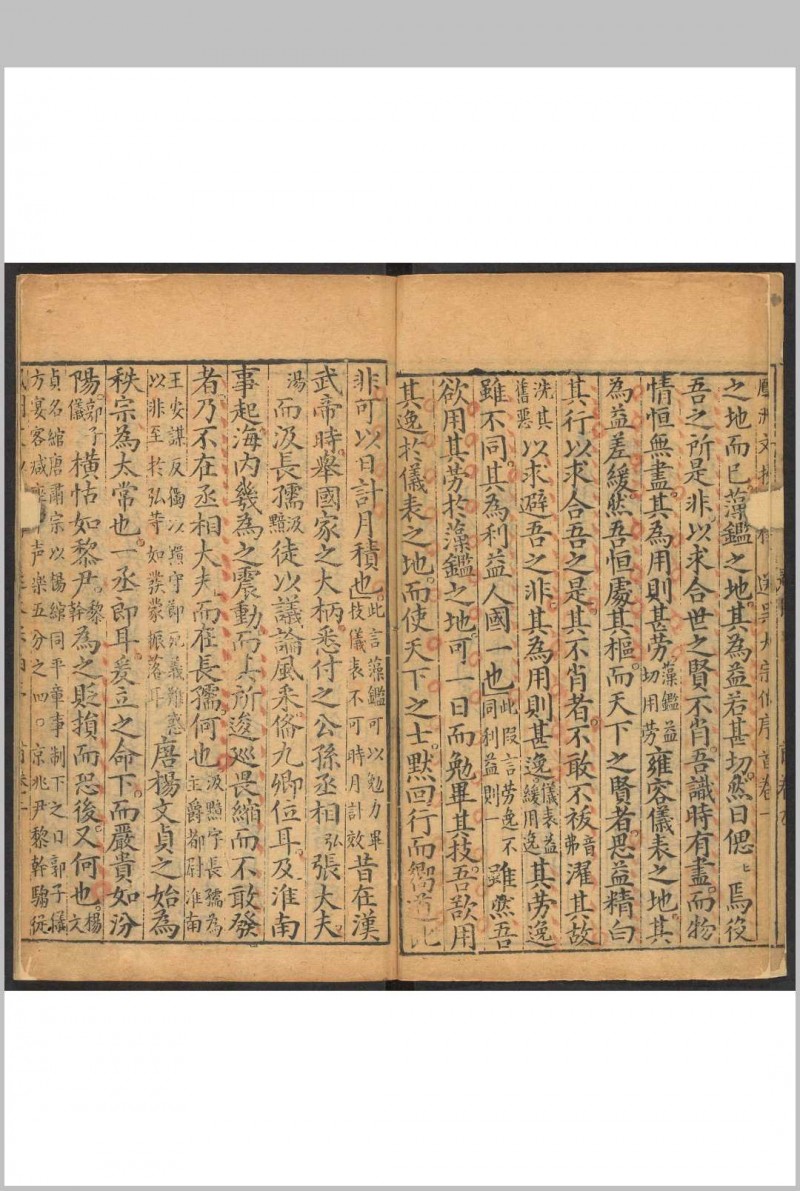 鳳洲文抄
之地而已藻鑑之地其為益若甚切然日偲〻焉役
吾之所是非以求合世之賢不肖吾識時有盡而物
情恒無盡其為用則甚劳藻鑑益切用劳雍容儀表之地其
為益差緩然吾恒處其樞而天下之賢者畏益精白
其行以求合吾之是其不肖者不敢不祓音弗濯其故
洗其舊惡以求避吾之非其為用則甚逸儀表益緩用逸其劳逸
雖不同其為利益人國一也此叚言劳逸不同利益則一雖然吾
欲用其劳於藻鑑之地可一日而勉畢其技吾欲用
其逸於儀表之地而使天下之士默回行而嚮
非可以日計月積也此言藻鑑可以勉力畢技儀表不可時月計效昔在漢
武帝時舉國家之大柄悉付之公孫丞相弘張大夫
湯而汲長孺黯徒以議論風采俻九卿位耳及淮南
事起海内幾為之震動而上所逡巡畏縮而不敢發
者乃不在丞相大夫而在長孺何也汲黯字長孺為主爵都尉淮南
王安謀反獨以黯守節死義難惑以非至於弘等如發蒙振落耳唐楊文貞之始為
秩宗為太常也一丞郎耳爰立之命下而嚴貴如汾
陽郭子儀橫怙如黎尹黎幹為之貶損而恐後又何也楊文
貞名綰唐肅宗以楊綰同平章事制下之日郭子儀
方宴客减座中声樂五分之四京兆尹黎幹騶從